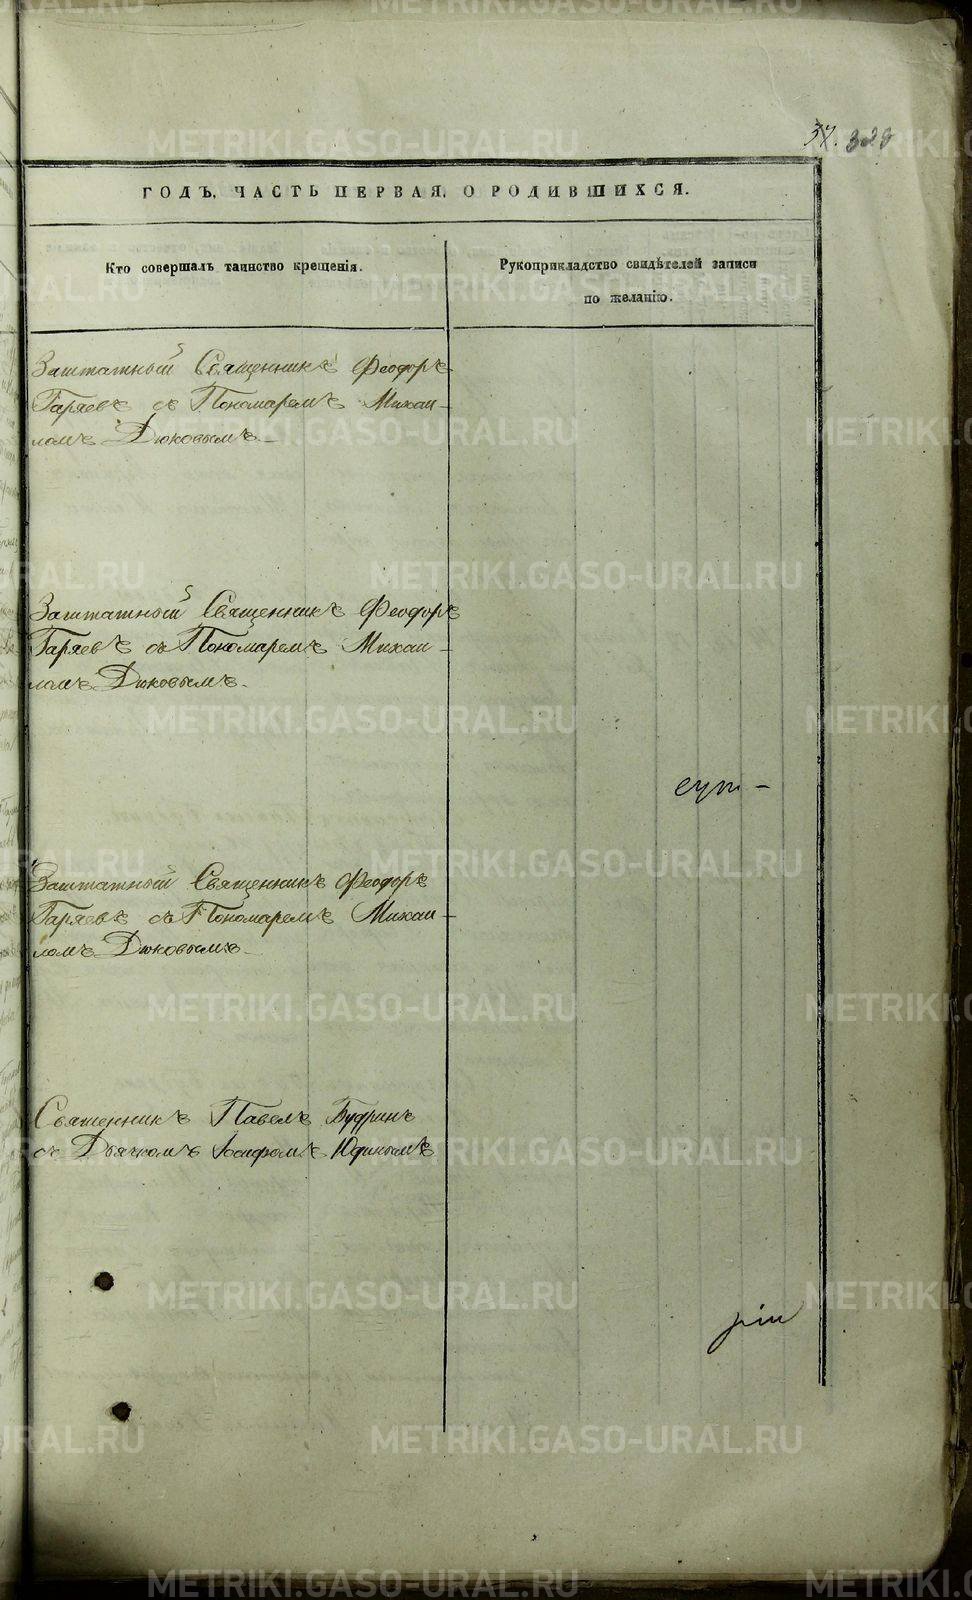 37. 328
ГОДЪ, ЧАСТЬ ПЕРВАЯ, О РОДИВШИХСЯ.
Кто совершалъ таинство крещенія.
Рукоприкладство свидѣтелей записи
по желанію.
Заштатный Священникъ Феодоръ
Гаряевъ съ Пономаремъ Михаи-
ломъ Дюковымъ.
Заштатный Священникъ Феодоръ
Гаряевъ съ Пономаремъ Михаи-
ломъ Дюковымъ.
сут-
Заштатный Священникъ Феодоръ
Гаряевъ съ Пономаремъ Михаи-
ломъ Дюковымъ
Священникъ Павелъ Будринъ
съ Дьячкомъ Іосифомъ Юдинымъ
METRIKI.GASO-URAL.RU